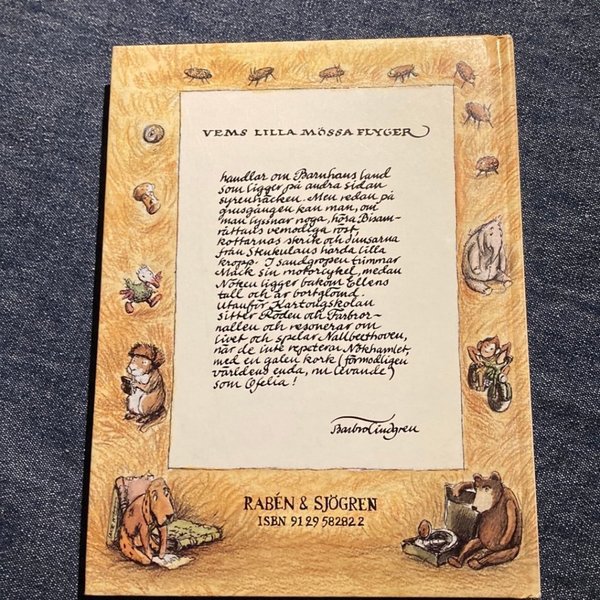 VEMS LILLA MÖSSA FLYGER
handlar om Barnhans land
som ligger på andra sidan
syrenhäcken. Men redan på
grusgången kan man, om
man lyssnar noga, höra Bisam-
råttans vemodiga röst,
kottarnas skrik och dunsarna
från Stenkulans hårda lilla
kropp. I sandgropen trimmar
Mack sin motorcykel, medan
Nöken ligger bakom Ellens
tall och är bortglömd.
Utanför Kartongskolan
sitter Röden och Farbror-
nallen och resonerar om
livet och spelar Nallbeethoven,
när de inte repeterar Nökhamlet,
med en galen kork (förmodligen
världens enda, nu levande)
som Ofelia!
Barbro Lindgren
RABÉN & SJÖGREN
ISBN 91 29 58282 2